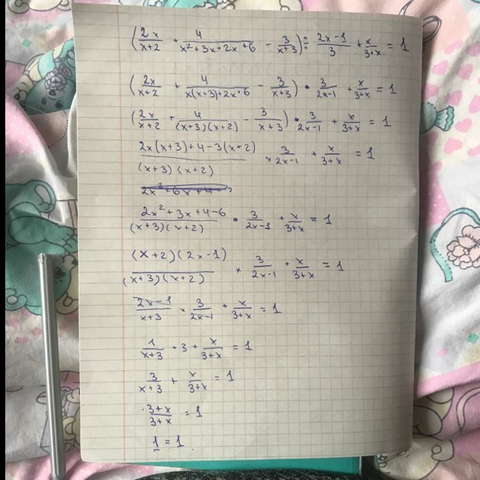 (2x/(x+2) + 4/(x²+3x+2x+6) - 3/(x+3)) : (2x-1)/3 + x/(3+x) = 1
(2x/(x+2) + 4/(x(x+3)+2x+6) - 3/(x+3)) • 3/(2x-1) + x/(3+x) = 1
(2x/(x+2) + 4/((x+3)(x+2)) - 3/(x+3)) • 3/(2x-1) + x/(3+x) = 1
(2x(x+3)+4-3(x+2))/((x+3)(x+2)) × 3/(2x-1) + x/(3+x) = 1
2x²+6x+4
(2x²+3x+4-6)/((x+3)(x+2)) • 3/(2x-1) + x/(3+x) = 1
((x+2)(2x-1))/((x+3)(x+2)) × 3/(2x-1) + x/(3+x) = 1
(2x-1)/(x+3) • 3/(2x-1) + x/(3+x) = 1
1/(x+3) • 3 + x/(3+x) = 1
3/(x+3) + x/(3+x) = 1
(3+x)/(3+x) = 1
1 = 1